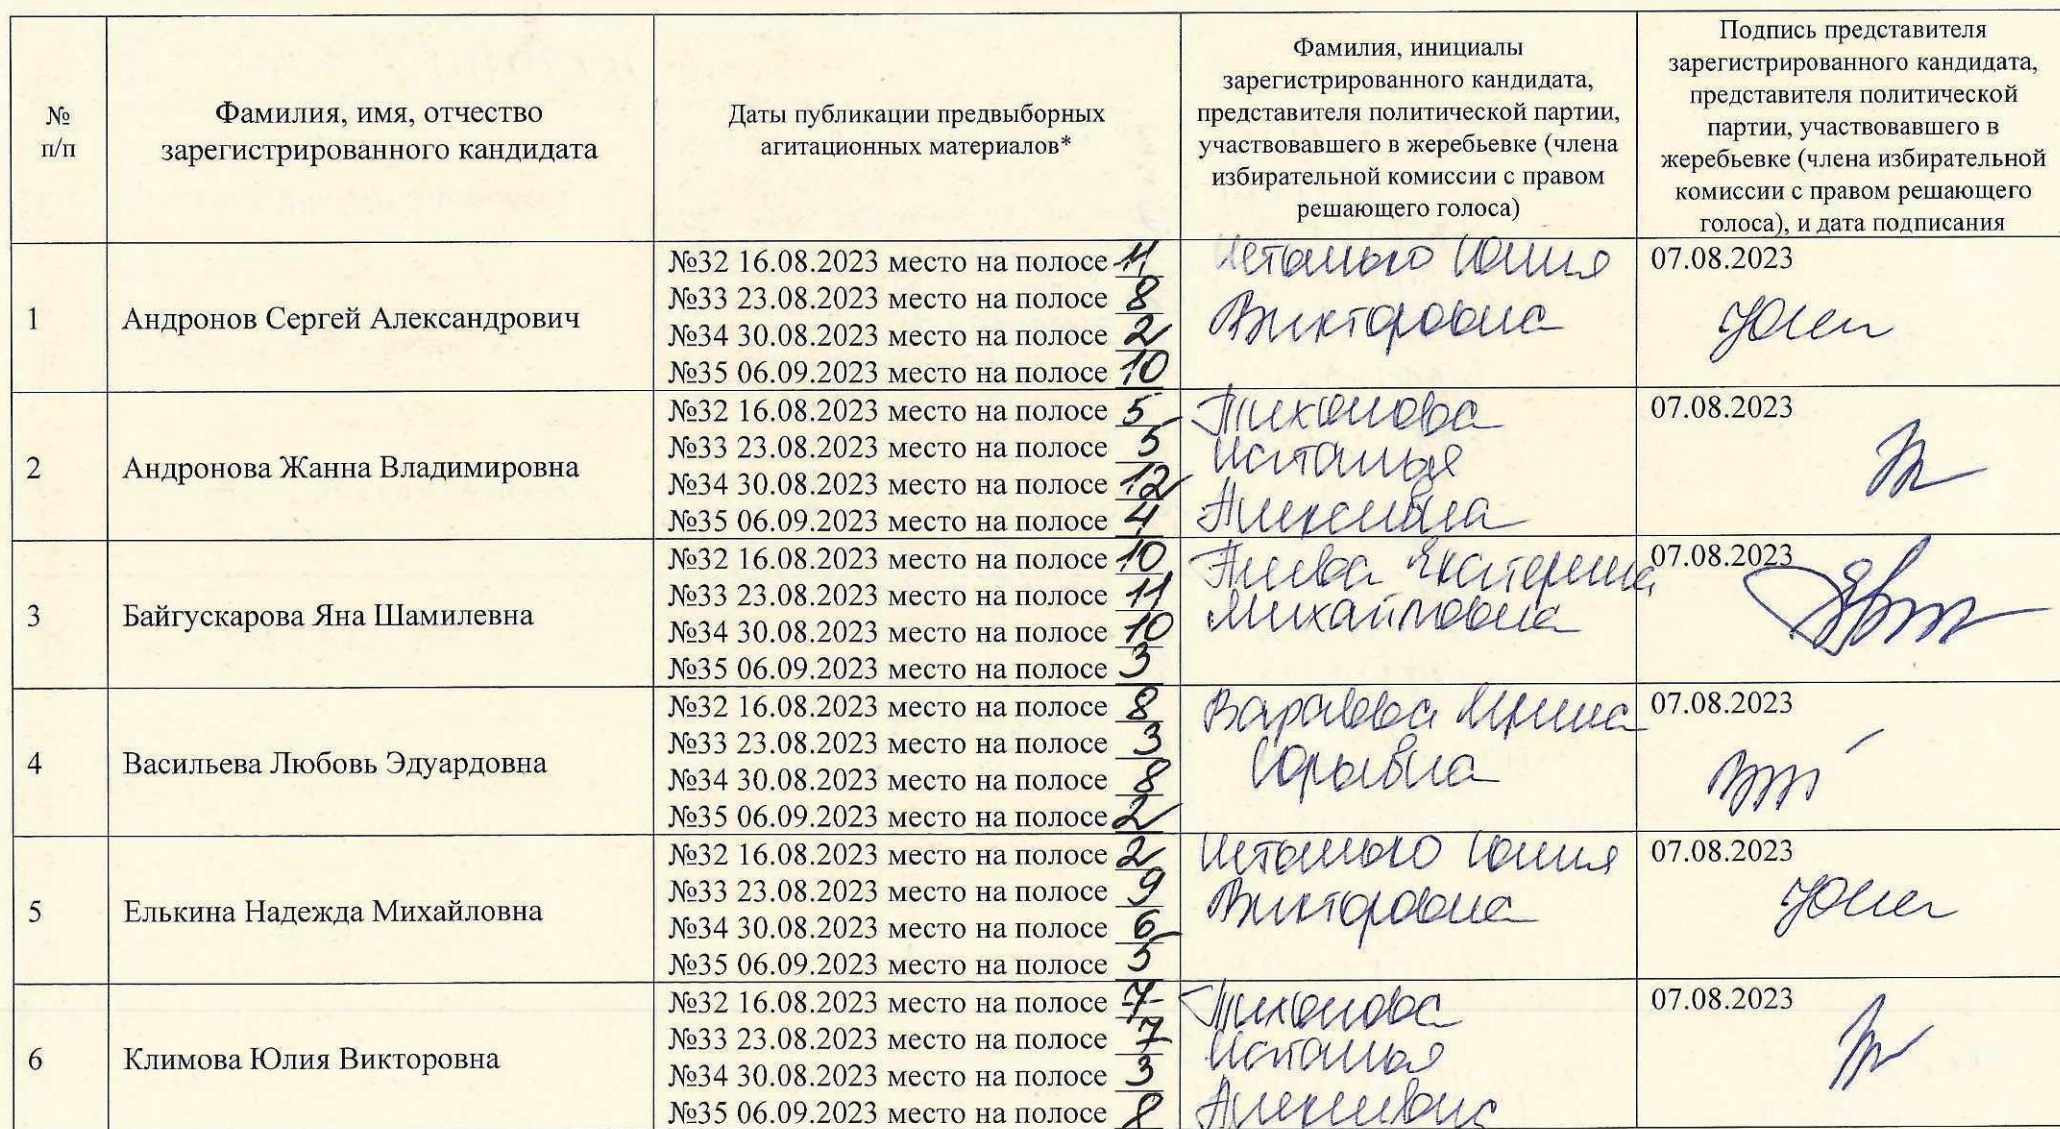 №
п/п
Фамилия, имя, отчество
зарегистрированного кандидата
Даты публикации предвыборных
агитационных материалов*
Фамилия, инициалы
зарегистрированного кандидата,
представителя политической партии,
участвовавшего в жеребьевке (члена
избирательной комиссии с правом
решающего голоса)
Подпись представителя
зарегистрированного кандидата,
представителя политической
партии, участвовавшего в
жеребьевке (члена избирательной
комиссии с правом решающего
голоса), и дата подписания
1
Андронов Сергей Александрович
№32 16.08.2023 место на полосе 11
№33 23.08.2023 место на полосе 8
№34 30.08.2023 место на полосе 2
№35 06.09.2023 место на полосе 10
Юлия
Викторовна
07.08.2023
2
Андронова Жанна Владимировна
№32 16.08.2023 место на полосе 5
№33 23.08.2023 место на полосе 5
№34 30.08.2023 место на полосе 12
№35 06.09.2023 место на полосе 4
Тихонова
Наталья
Алексеевна
07.08.2023
3
Байгускарова Яна Шамилевна
№32 16.08.2023 место на полосе 10
№33 23.08.2023 место на полосе 11
№34 30.08.2023 место на полосе 10
№35 06.09.2023 место на полосе 3
Екатерина
Михайловна
07.08.2023
4
Васильева Любовь Эдуардовна
№32 16.08.2023 место на полосе 8
№33 23.08.2023 место на полосе 3
№34 30.08.2023 место на полосе 8
№35 06.09.2023 место на полосе 2
Ирина
Юрьевна
07.08.2023
5
Елькина Надежда Михайловна
№32 16.08.2023 место на полосе 2
№33 23.08.2023 место на полосе 9
№34 30.08.2023 место на полосе 6
№35 06.09.2023 место на полосе 5
Юлия
Викторовна
07.08.2023
6
Климова Юлия Викторовна
№32 16.08.2023 место на полосе 7
№33 23.08.2023 место на полосе 7
№34 30.08.2023 место на полосе 3
№35 06.09.2023 место на полосе 8
Тихонова
Наталья
Алексеевна
07.08.2023